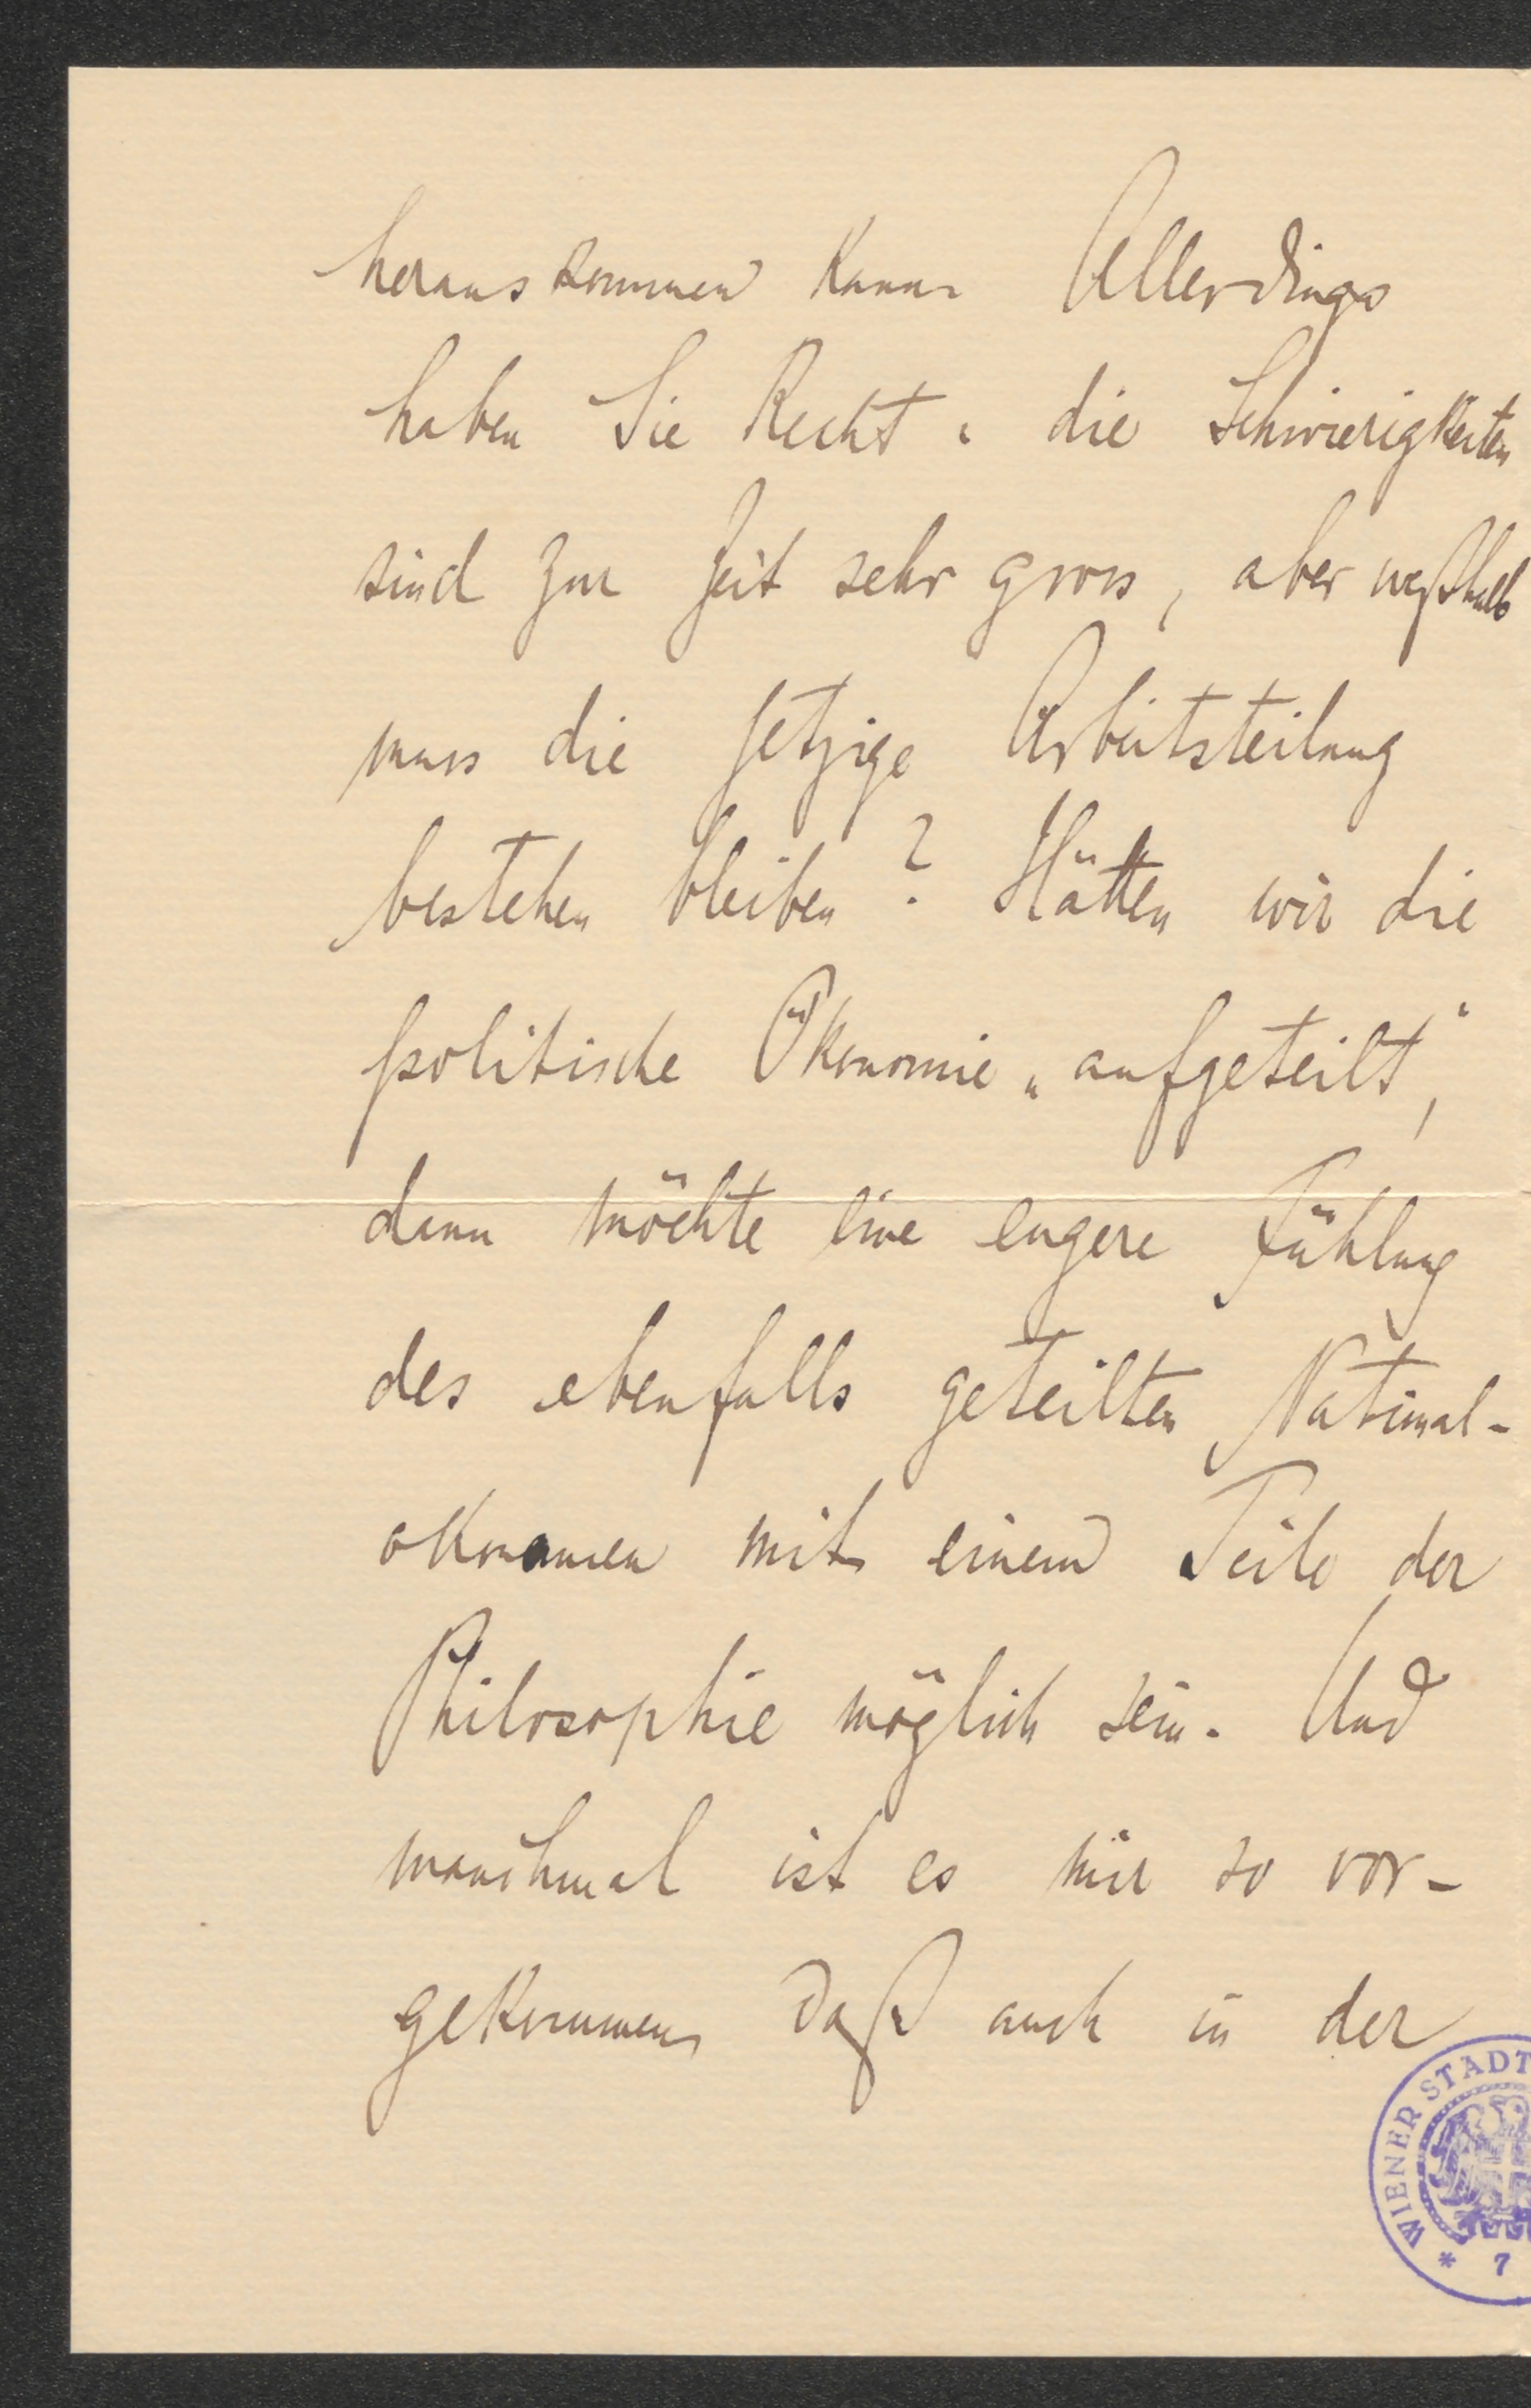 herauskommen kann. Allerdings
haben Sie Recht: die Schwierigkeiten
sind zur Zeit sehr gross, aber weßhalb
muss die jetzige Arbeitsteilung
bestehen bleiben? Hätten wir die
politische Ökonomie „aufgeteilt“,
dann möchte eine engere Fühlung
des ebenfalls geteilten National-
okonomen mit einem Teile der
Philosophie möglich sein. Und
manchmal ist es mir so vor-
gekommen daß auch in der
WIENER STADT
* 7